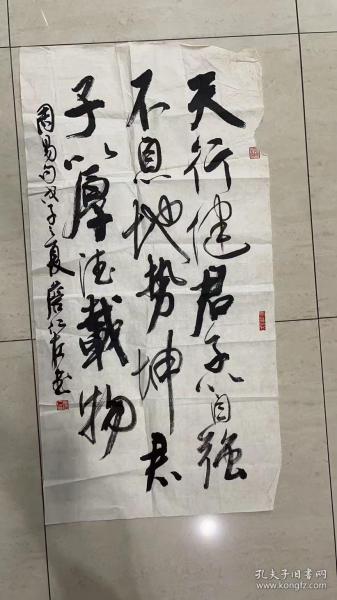 天行健君子以自强
不息地势坤君
子以厚德载物
周易句戊子之夏
孔夫子旧书网
www.kongfz.com